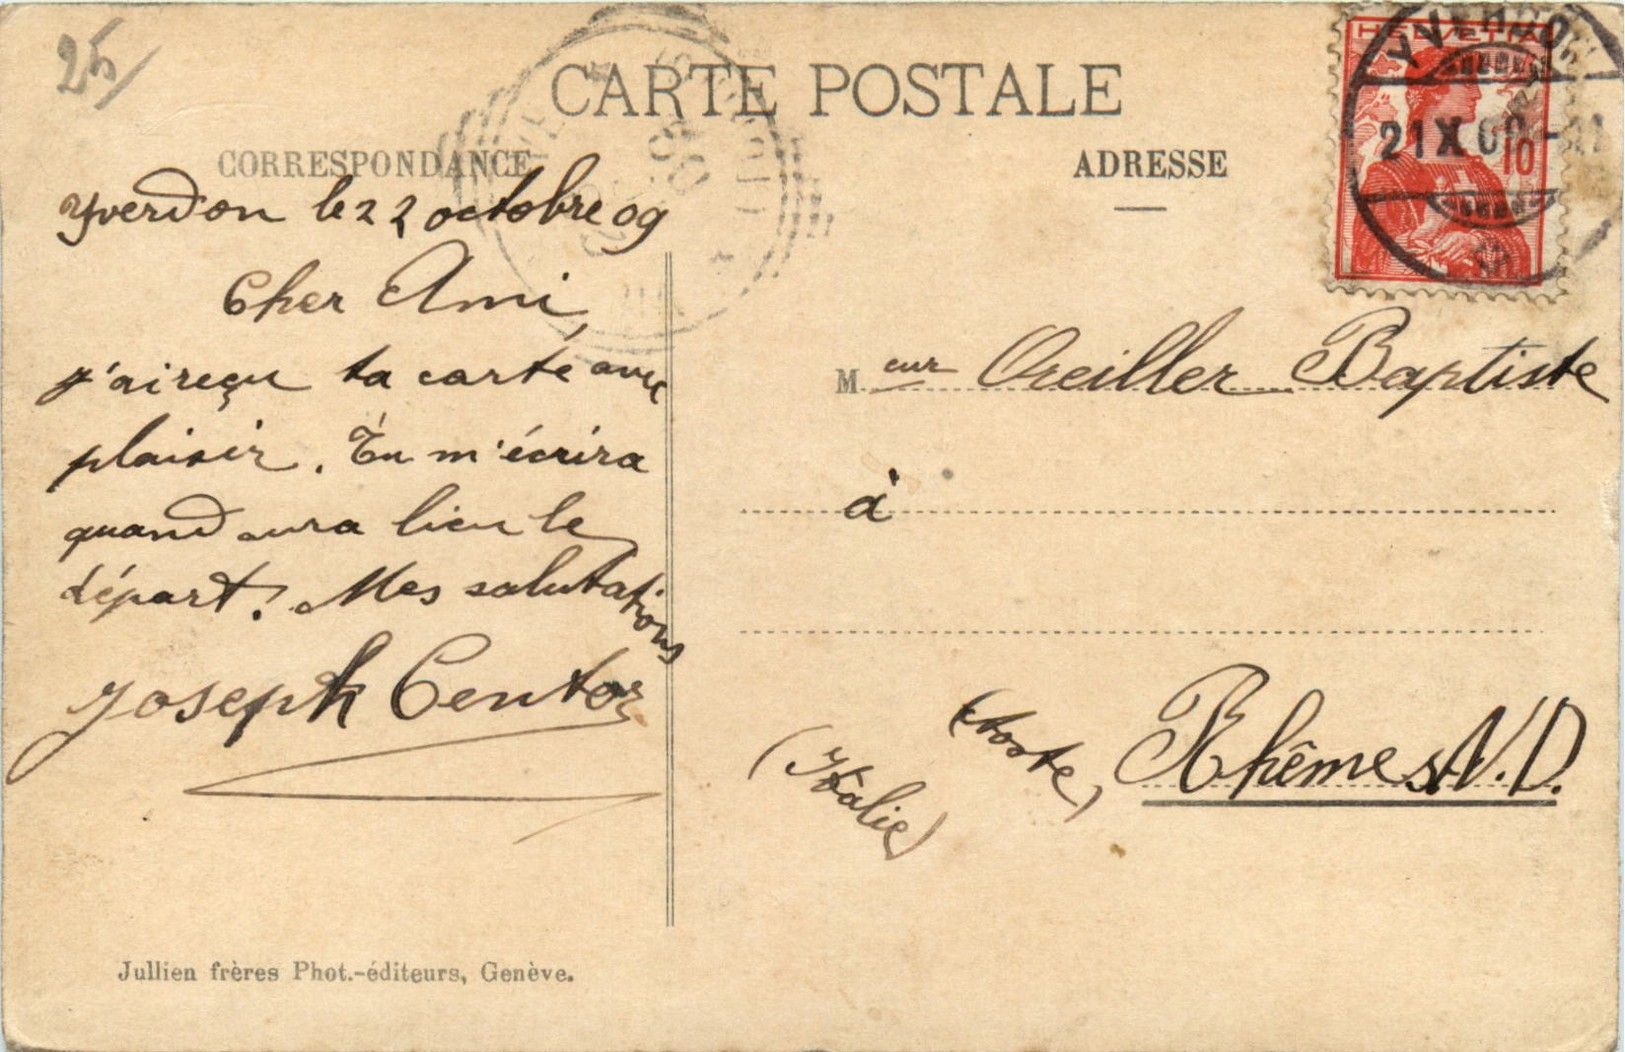 25
CARTE POSTALE
CORRESPONDANCE
Yverdon le 22 octobre 09
Cher Ami,
j'ai reçu ta carte avec
plaisir. Tu m'écrira
quand aura lieu le
départ. Mes salutations
Joseph Centoz
Jullien frères Phot.-éditeurs, Genève.
ADRESSE
HELVETIA
10
21 X 09
M eur Oreiller Baptiste
à
Rhêmes N. D.
(Aoste)
(Itâlie)